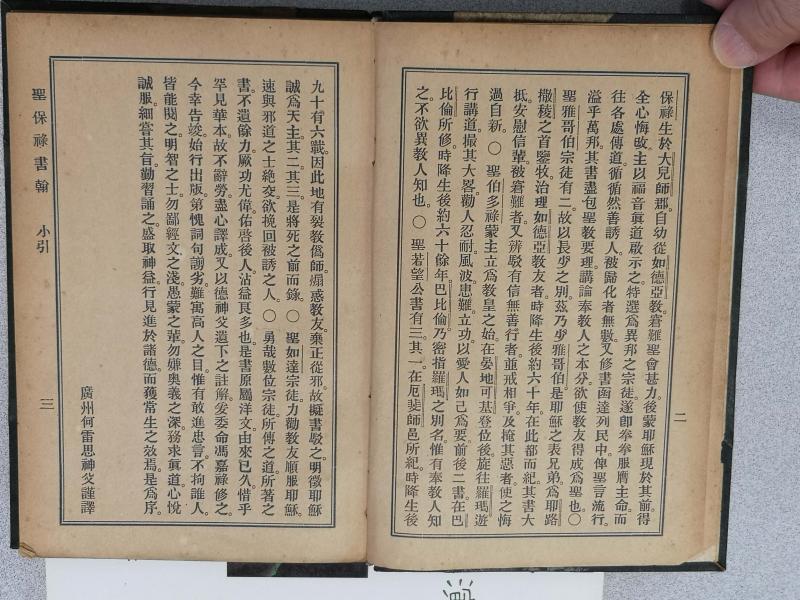 保祿生於大兒師郡。自幼從如德亞教。窘難聖會甚力。後蒙耶穌現於其前。得
全心悔改。主以福音眞道啟示之。特選爲異邦之宗徒。遂卽拳拳服膺主命。而
往各處傳道。循循然善誘人。被歸化者無數。又修書函達列民中。俾聖言流行。
溢乎萬邦。其書盡包聖教要理。講論奉教人之本分。欲使教友得成爲聖也。〇
聖雅哥伯宗徒有二。故以長少之別。茲乃少雅哥伯。是耶穌之表兄弟。爲耶路
撒稜之首鑒牧。治理如德亞教友者。時降生後約六十年。在此都而紀其書。大
抵安慰信輩。被窘難者。又辨駁有信無善行者。並戒相爭。及掩其惡者。使之悔
過自新。〇聖伯多祿蒙主立爲教皇之始。在晏地可基登位後。旋往羅瑪。遊
行講道。撮其大畧。勸人忍耐風波患難。立功。以愛人如己爲要。前後二書。在巴
比倫所修。時降生後約六十餘年。巴比倫乃密指羅瑪之別名。惟有奉教人知
之。不欲異教人知也。〇聖若望公書有三。其一在厄斐師邑所紀。時降生後
二
九十有六載。因此地有裂教僞師。煽惑教友。棄正從邪。故擬書駁之。明徵耶穌
誠爲天主。其二其三。是將死之前而錄。〇聖如達宗徒。力勸教友順服耶穌。
速與邪道之士絶交。欲挽回被誘之人。〇勇哉數位宗徒。所傳之道。所著之
書。不遺餘力。厥功尤偉。佑啓後人。沾益良多也。是書原屬洋文。由來已久。惜乎
罕見華本。故不辭勞。盡心譯成。又以德神父遺下之註解。爰委命馮嘉祿修之。
今幸告竣。始行出版。第愧詞句謭劣。難寓高人之目。惟有敢進忠言。不拘誰人。
皆能閱之。明智之士。勿鄙經文之淺。愚蒙之輩。勿嫌奧義之深。務求眞道。心悅
誠服。細嘗其旨。勤習誦之。盛取神益。行見進於諸德。而獲常生之效焉。是爲序。
廣州何雷思神父謹譯
聖保祿書翰 小引
三